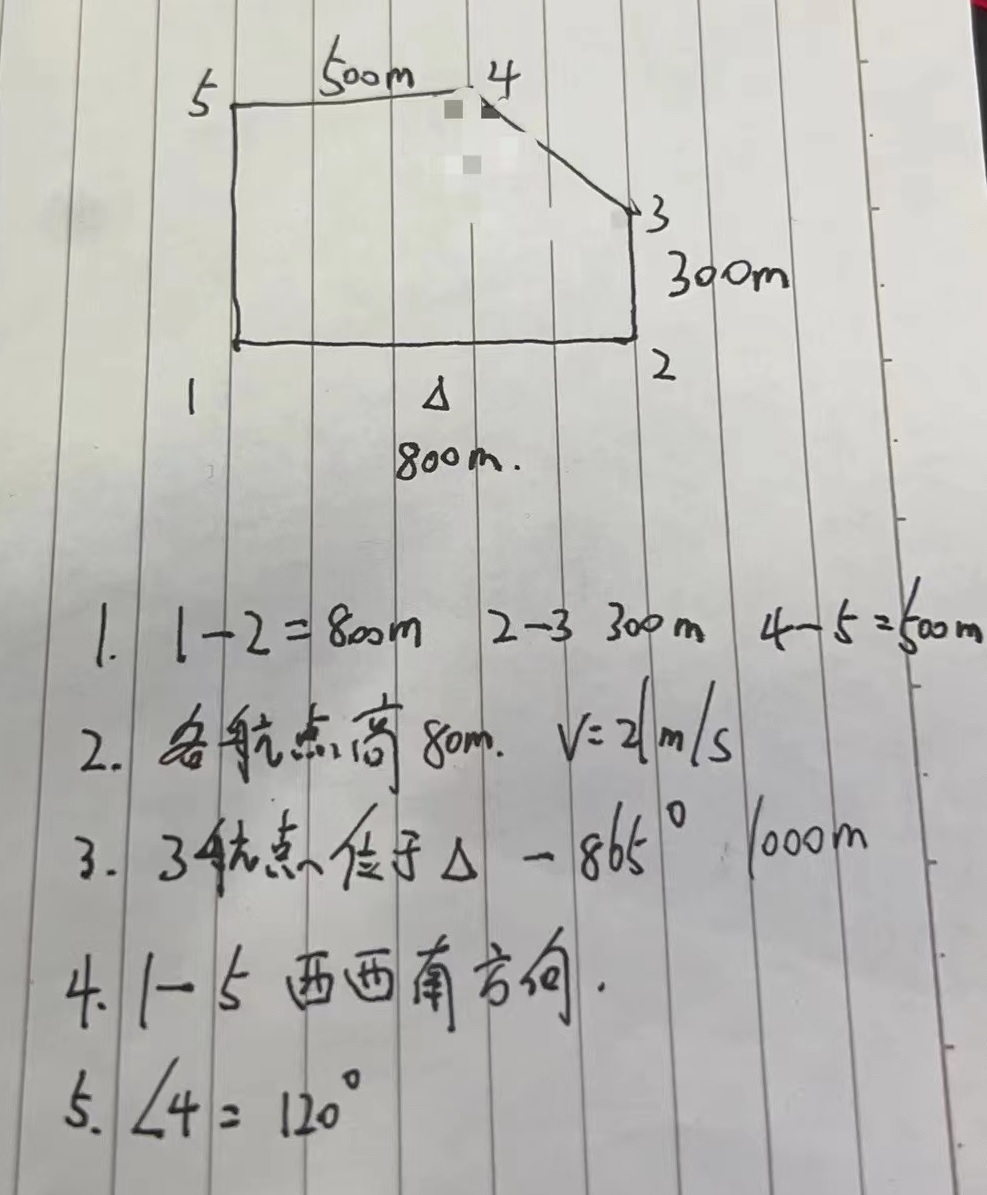 500m 4
5
3
300m
2
1 Δ
800m.
1. 1-2=800m 2-3 300m 4-5=500m
2. 各航点高 80m. V=21m/s
3. 3航点位于Δ -865° 1000m
4. 1-5 西西南方向.
5. ∠4=120°